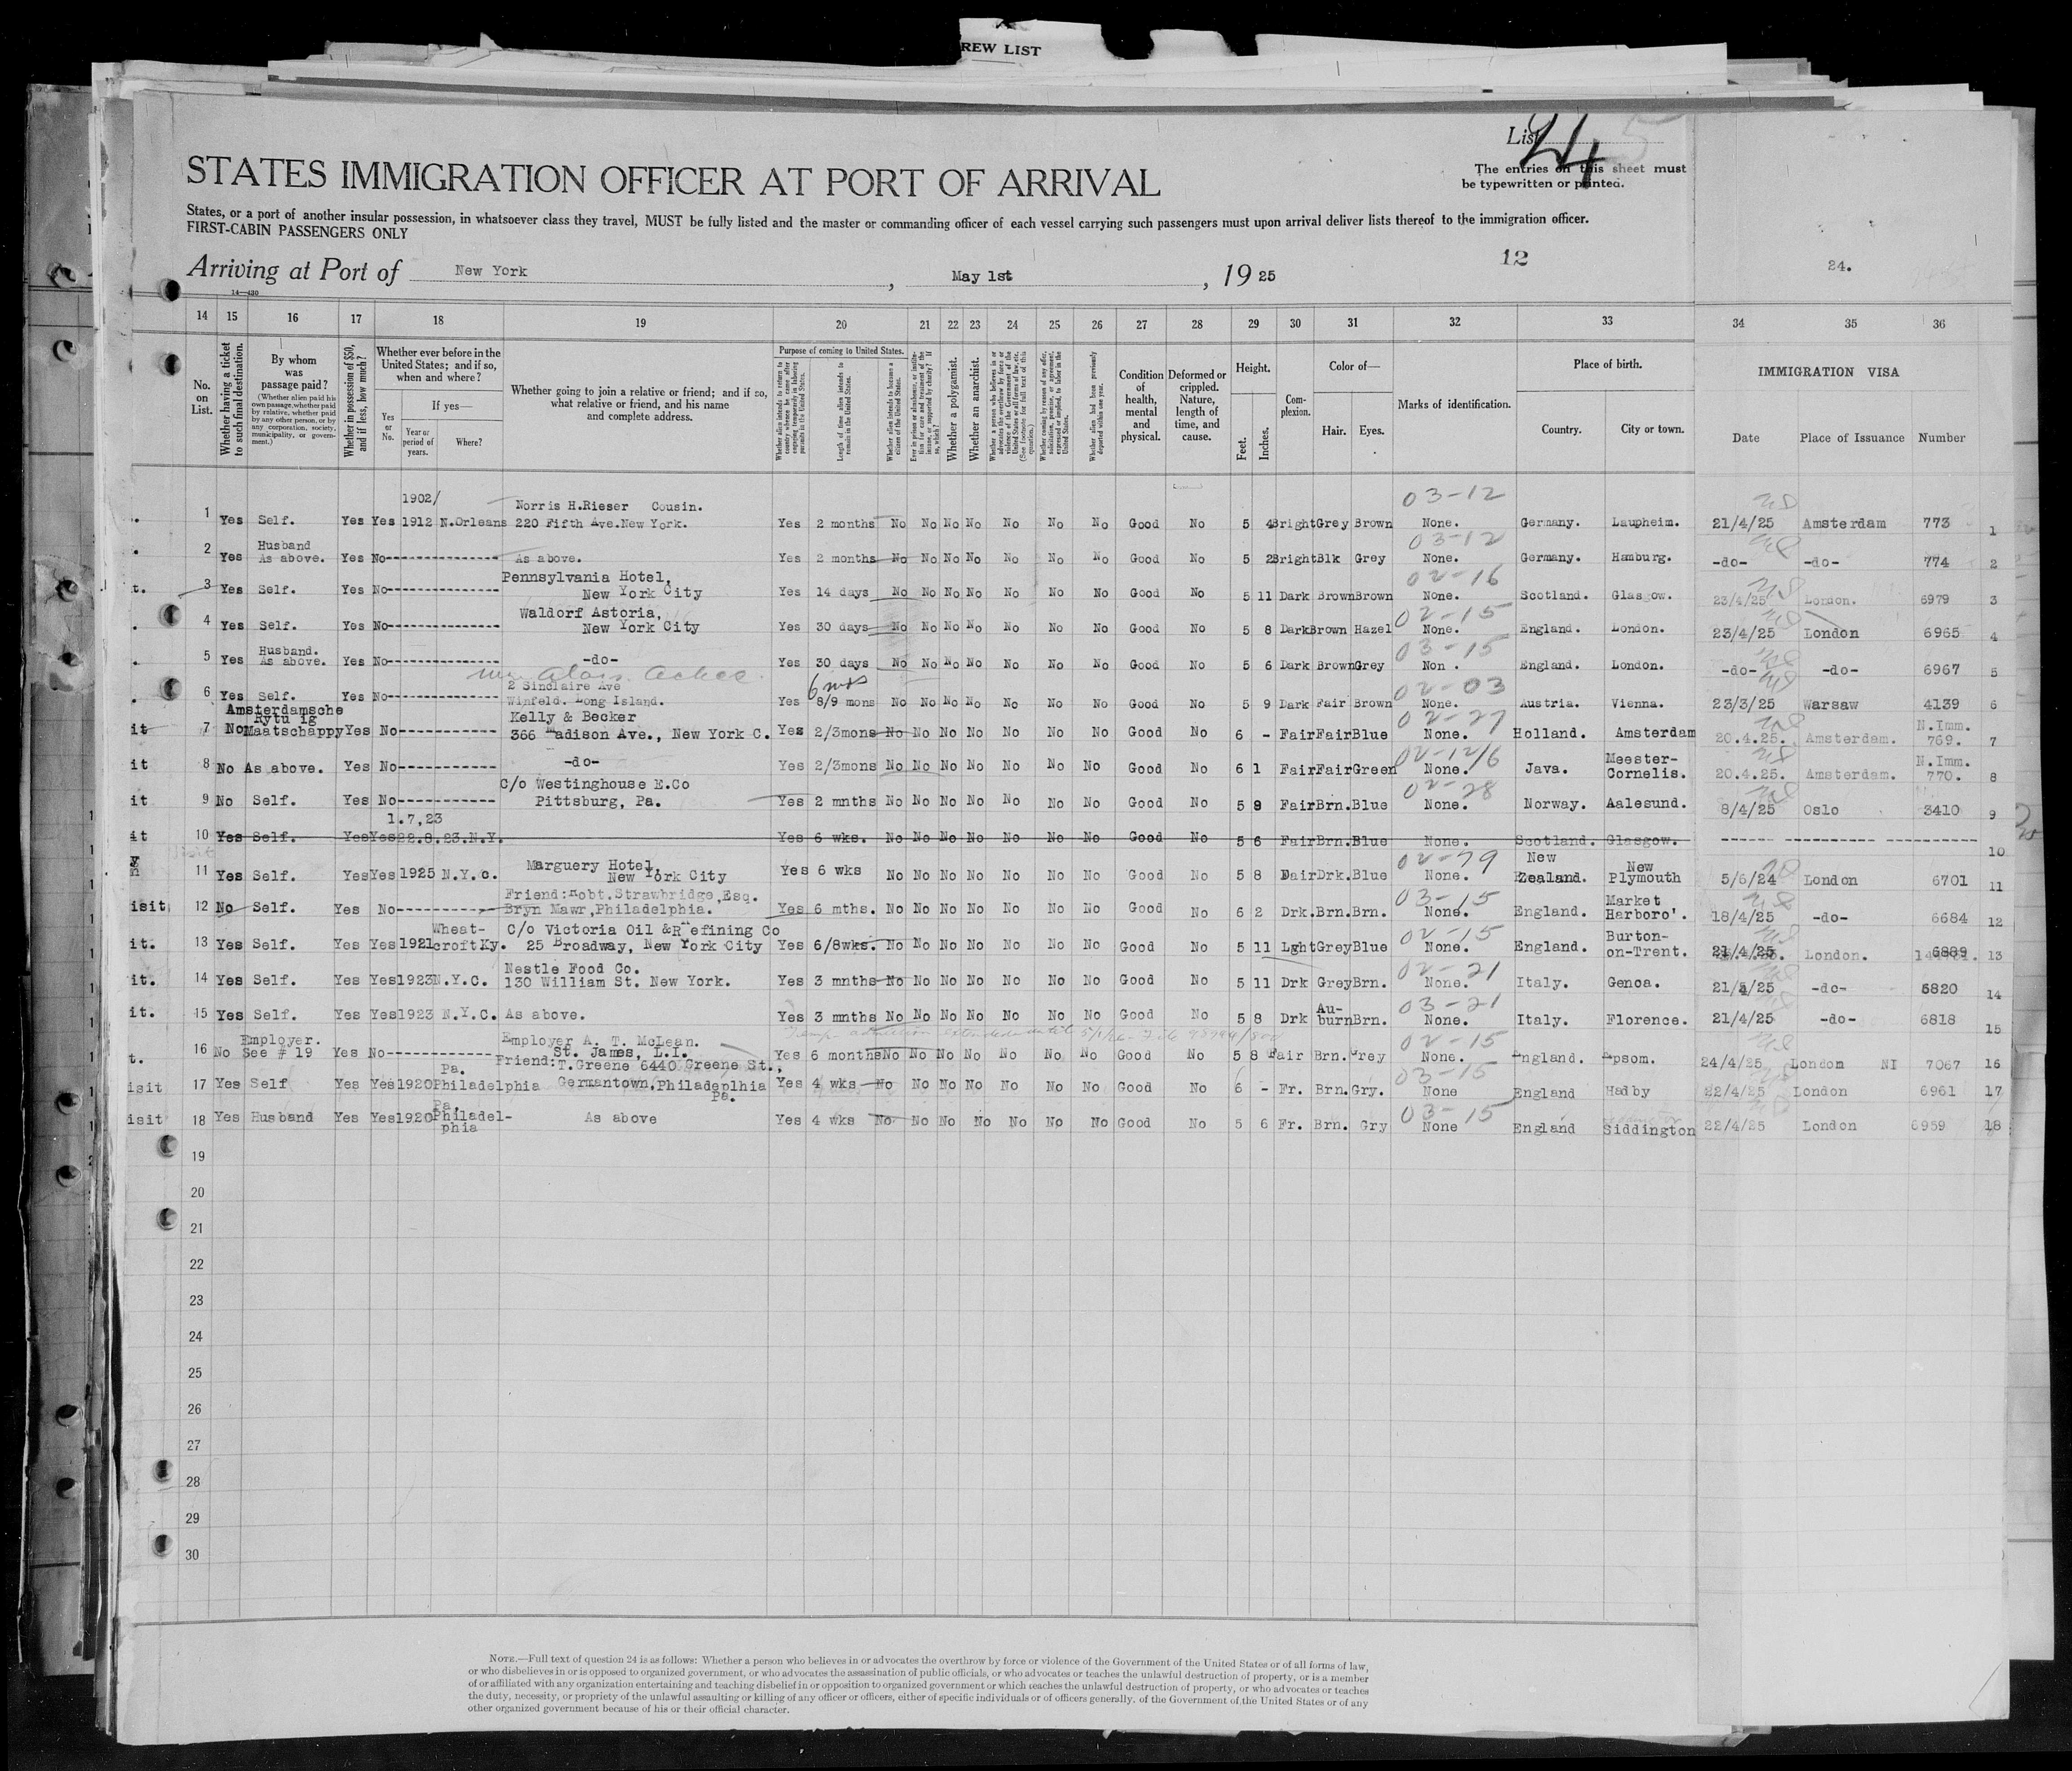 REW LIST
List 24
The entries on this sheet must
be typewritten or printed.
STATES IMMIGRATION OFFICER AT PORT OF ARRIVAL
States, or a port of another insular possession, in whatsoever class they travel, MUST be fully listed and the master or commanding officer of each vessel carrying such passengers must upon arrival deliver lists thereof to the immigration officer.
FIRST-CABIN PASSENGERS ONLY
12
24.
Arriving at Port of New York, May 1st, 1925
14—430
14 15 16 17 18 19 20 21 22 23 24 25 26 27 28 29 30 31 32 33 34 35 36
No. on List.
Whether having a ticket to such final destination.
By whom was passage paid?
(Whether alien paid his own passage, whether paid by relative, whether paid by any other person, or by any corporation, society, municipality, or government.)
Whether in possession of $50, and if less, how much?
Whether ever before in the United States; and if so, when and where?
Yes or No.
If yes—
Year or period of years.
Where?
Whether going to join a relative or friend; and if so, what relative or friend, and his name and complete address.
Purpose of coming to United States.
Whether alien intends to return to country whence he came after engaging temporarily in laboring pursuits in the United States.
Length of time alien intends to remain in the United States.
Whether alien intends to become a citizen of the United States.
Whether a polygamist.
Whether an anarchist.
Condition of health, mental and physical.
Deformed or crippled. Nature, length of time, and cause.
Height.
Feet. Inches.
Complexion.
Color of—
Hair. Eyes.
Marks of identification.
Place of birth.
Country. City or town.
IMMIGRATION VISA
Date Place of Issuance Number
1 Yes Self. Yes Yes 1902/ 1912 N.Orleans Norris H.Rieser Cousin. 220 Fifth Ave.New York. Yes 2 months No No No No No No No Good No 5 4 Bright Grey Brown 03-12 None. Germany. Laupheim. 21/4/25 Amsterdam 773 1
2 Yes Husband As above. Yes No As above. Yes 2 months No No No No No No No Good No 5 2 Bright Blk Grey 03-12 None. Germany. Hamburg. -do- -do- 774 2
t. 3 Yes Self. Yes No Pennsylvania Hotel, New York City Yes 14 days No No No No No No No Good No 5 11 Dark Brown Brown 02-16 None. Scotland. Glasgow. 23/4/25 London. 6979 3
4 Yes Self. Yes No Waldorf Astoria, New York City Yes 30 days No No No No No No No Good No 5 8 Dark Brown Hazel 02-15 None. England. London. 23/4/25 London 6965 4
5 Yes Husband. As above. Yes No -do- Yes 30 days No No No No No No No Good No 5 6 Dark Brown Grey 03-15 Non . England. London. -do- -do- 6967 5
6 Yes Self. Yes No 2 Sinclaire Ave Winfeld. Long Island. Yes 6 mos 8/9 mons No No No No No No No Good No 5 9 Dark Fair Brown 02-03 None. Austria. Vienna. 23/3/25 Warsaw 4139 6
it 7 No Amsterdamsche Rytu ig Maatschappy Yes No Kelly & Becker 366 Madison Ave., New York C. Yes 2/3mons No No No No No No No Good No 6 - Fair Fair Blue 02-27 None. Holland. Amsterdam 20.4.25. Amsterdam. N.Imm. 769. 7
it 8 No As above. Yes No -do- Yes 2/3mons No No No No No No No Good No 6 1 Fair Fair Green 02-12/6 None. Java. Meester-Cornelis. 20.4.25. Amsterdam. N.Imm. 770. 8
it 9 No Self. Yes No C/o Westinghouse E.Co Pittsburg, Pa. Yes 2 mnths No No No No No No No Good No 5 9 Fair Brn. Blue 02-28 None. Norway. Aalesund. 8/4/25 Oslo 3410 9
it 10 Yes Self. Yes Yes 1.7,23 22.8.23.N.Y. Yes 6 wks. No No No No No No No Good No 5 6 Fair Brn. Blue None. Scotland. Glasgow. 10
11 Yes Self. Yes Yes 1925 N.Y.C. Marguery Hotel, New York City Yes 6 wks No No No No No No No Good No 5 8 Fair Drk. Blue 02-79 None. New Zealand. New Plymouth 5/6/24 London 6701 11
isit 12 No Self. Yes No Friend:Robt.Strawbridge,Esq. Bryn Mawr,Philadelphia. Yes 6 mths. No No No No No No No Good No 6 2 Drk. Brn. Brn. 03-15 None. England. Market Harboro'. 18/4/25 -do- 6684 12
it. 13 Yes Self. Yes Yes 1921 Wheat-croft Ky. C/o Victoria Oil & Refining Co 25 Broadway, New York City Yes 6/8wks. No No No No No No No Good No 5 11 Lght Grey Blue 02-15 None. England. Burton-on-Trent. 21/4/25 London. 6889 13
it. 14 Yes Self. Yes Yes 1923 N.Y.C. Nestle Food Co. 130 William St. New York. Yes 3 mnths No No No No No No No Good No 5 11 Drk Grey Brn. 02-21 None. Italy. Genoa. 21/4/25 -do- 6820 14
it. 15 Yes Self. Yes Yes 1923 N.Y.C. As above. Yes 3 mnths No No No No No No No Good No 5 8 Drk Au-burn Brn. 03-21 None. Italy. Florence. 21/4/25 -do- 6818 15
t. 16 No Employer. See # 19 Yes No Employer A. T. McLean. St. James, L.I. Yes 6 months No No No No No No No Good No 5 8 Fair Brn. Grey 02-15 None. England. Epsom. 24/4/25 London NI 7067 16
isit 17 Yes Self Yes Yes 1920 Pa. Philadelphia Friend:T.Greene 6440 Greene St., Germantown,Philadeplhia Pa. Yes 4 wks No No No No No No No Good No 6 - Fr. Brn. Gry. 03-15 None England Hadby 22/4/25 London 6961 17
isit 18 Yes Husband Yes Yes 1920 Pa. Philadel-phia As above Yes 4 wks No No No No No No No Good No 5 6 Fr. Brn. Gry 03-15 None England Siddington 22/4/25 London 6959 18
19
20
21
22
23
24
25
26
27
28
29
30
NOTE.—Full text of question 24 is as follows: Whether a person who believes in or advocates the overthrow by force or violence of the Government of the United States or of all forms of law,
or who disbelieves in or is opposed to organized government, or who advocates the assassination of public officials, or who advocates or teaches the unlawful destruction of property, or is a member
of or affiliated with any organization entertaining and teaching disbelief in or opposition to organized government or which teaches the unlawful destruction of property, or who advocates or teaches
the duty, necessity, or propriety of the unlawful assaulting or killing of any officer or officers, either of specific individuals or of officers generally, of the Government of the United States or of any
other organized government because of his or their official character.